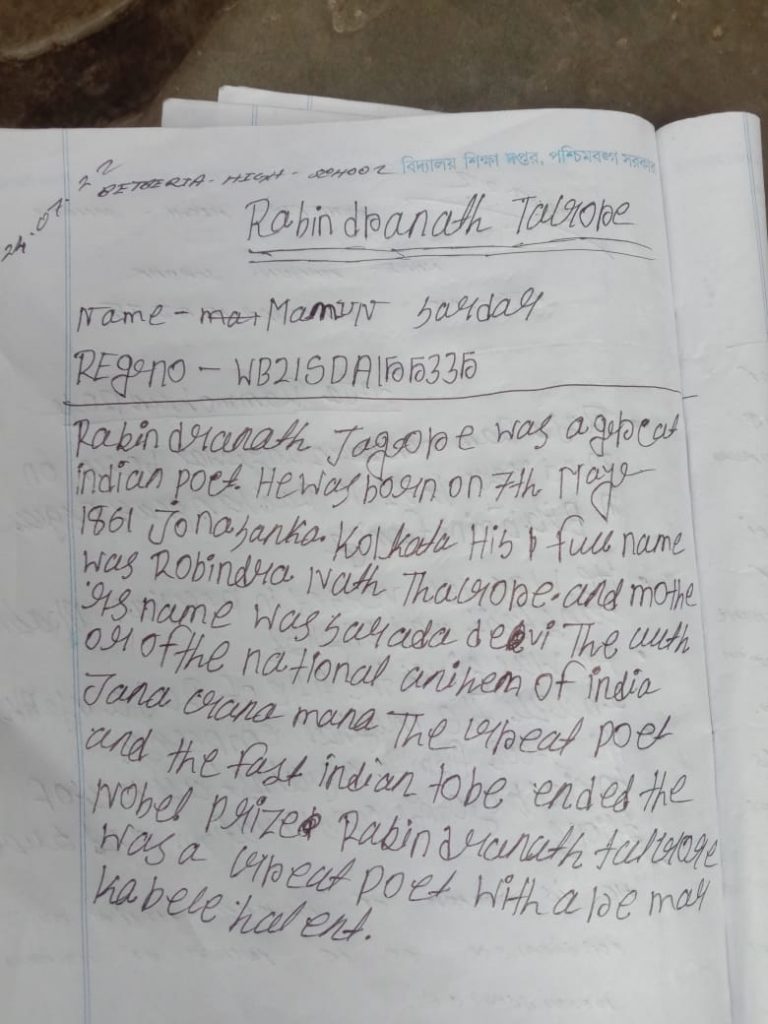 24.07.22
BETBERIA-HIGH-SCHOOL বিদ্যালয় শিক্ষা দপ্তর, পশ্চিমবঙ্গ সরকার
Rabindranath Tagore
Name - Mamun Sardar
REgeno - WB21SDA1555335
Rabindranath Tagore was a great
indian poet. He was born on 7th Maye
1861 Jonasanka. Kolkata His full name
was Robindra Nath Thagore. and mothe
rs name was Sarada devi The auth
or of the national anihem of india
Jana Gana mana The great poet
and the fast indian to be ended the
Nobel prize Rabindranath tagore
was a great poet with a re mar
kabele talent.